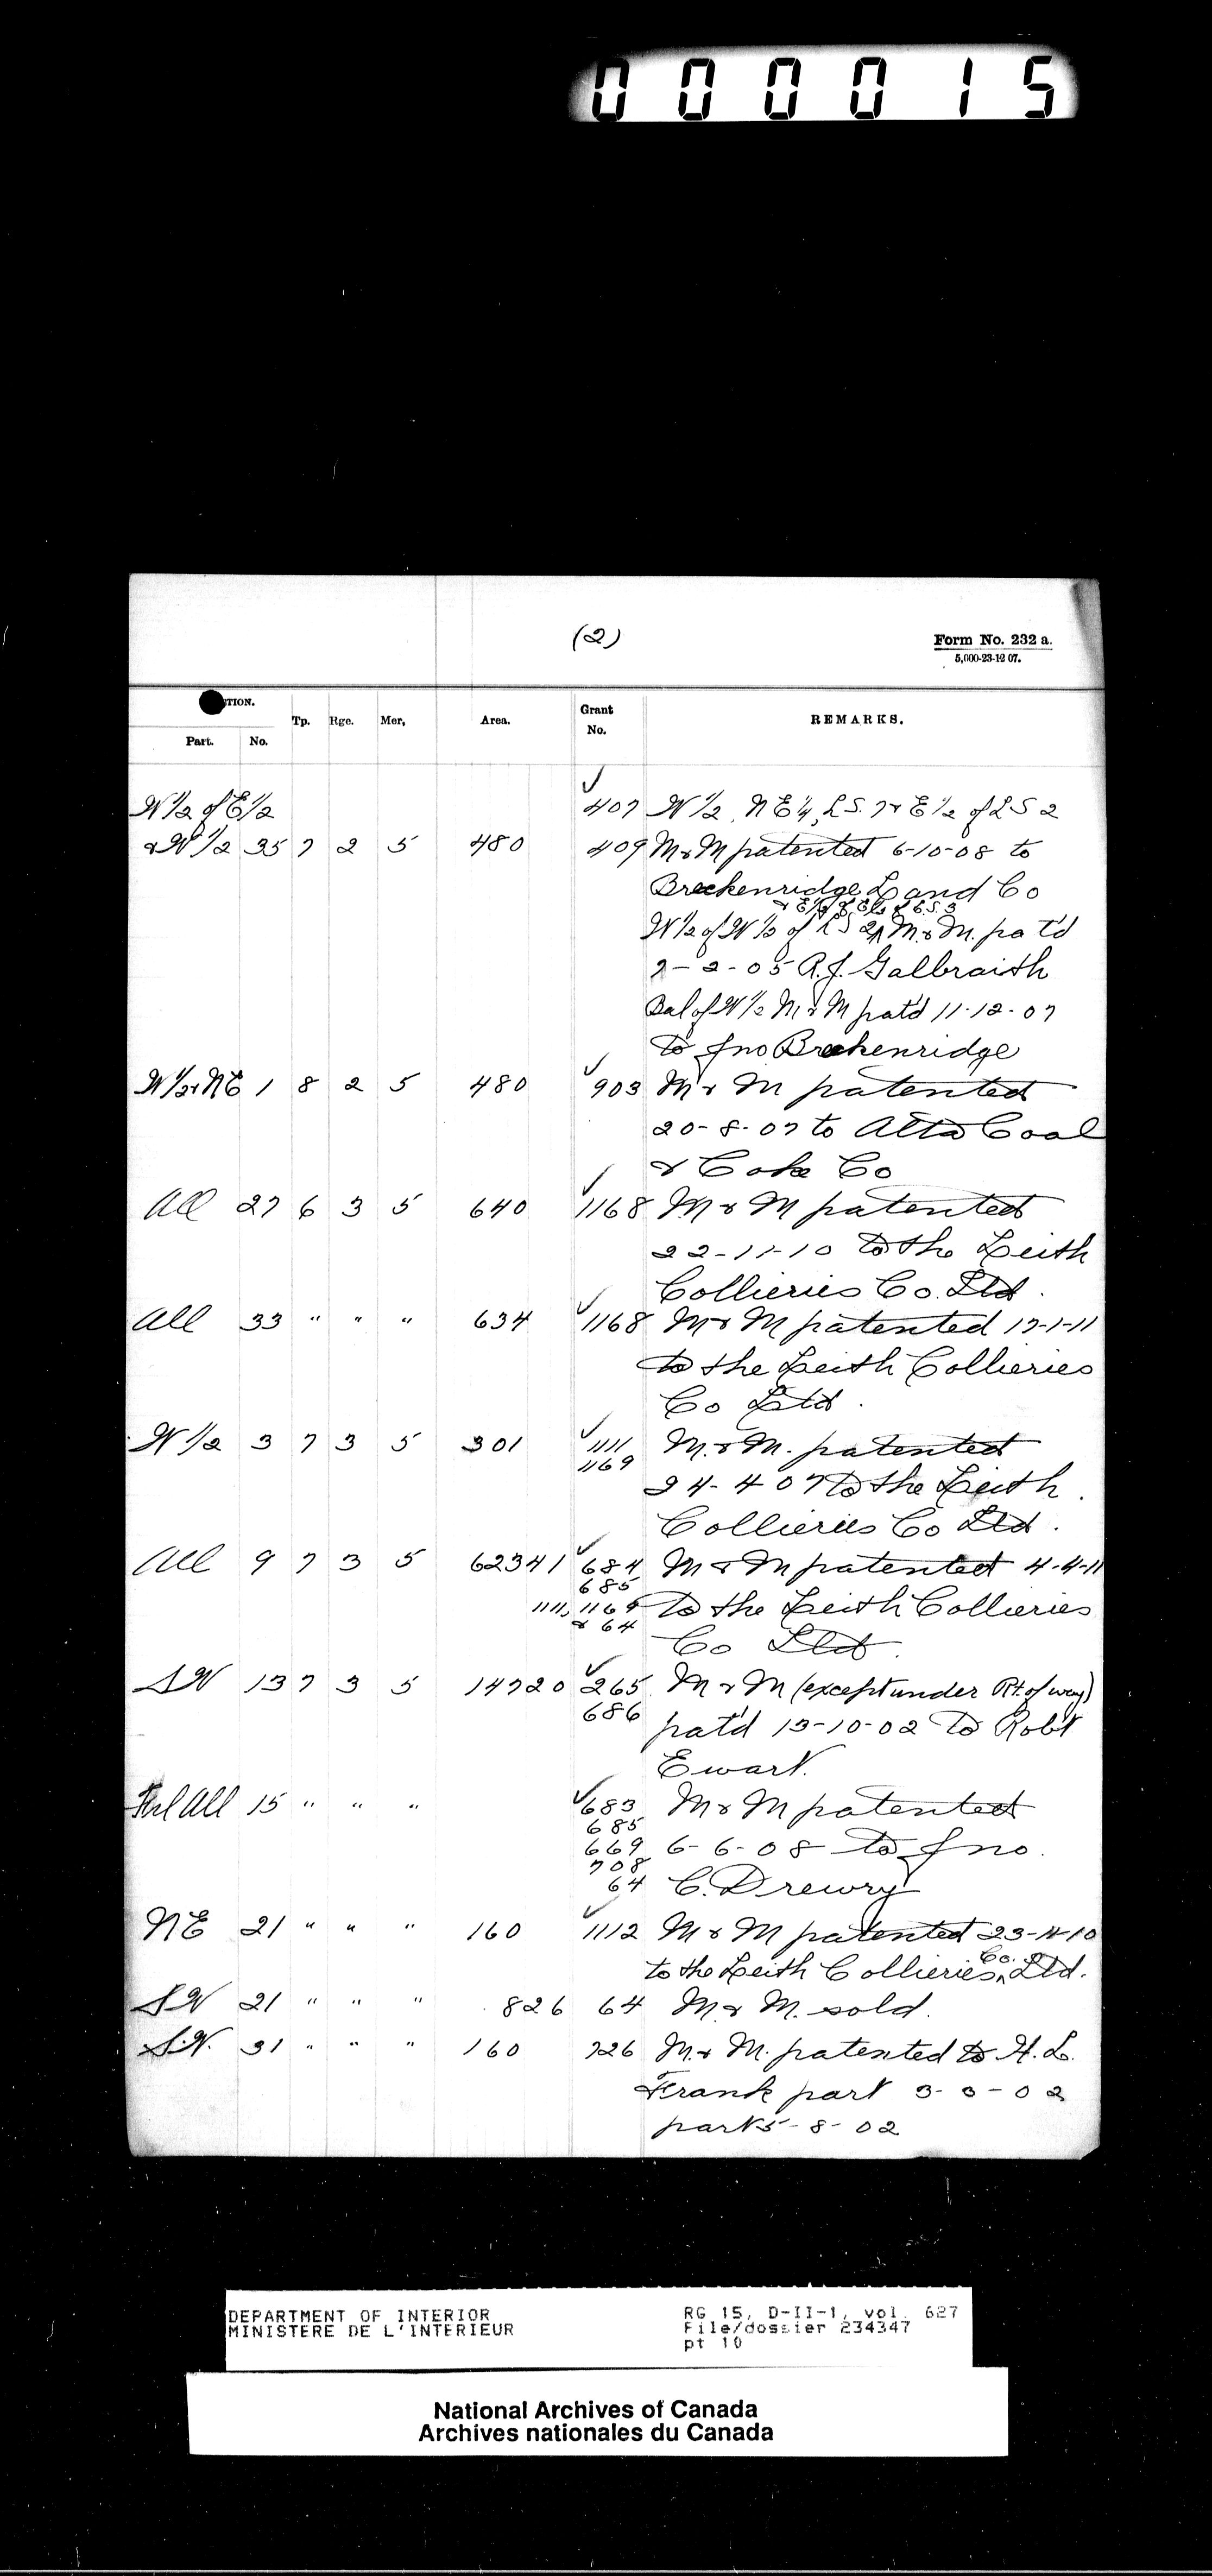 000015
(2)
Form No. 232 a.
5,000-23-12 07.
TION.
Part. No. Tp. Rge. Mer. Area. Grant No. REMARKS.
W 1/2 of E 1/2 407 W 1/2, N E 1/4, L S. 7 & E 1/2 of L S 2
& W 1/2 35 7 2 5 480 409 M & M patented 6-10-08 to
Breckenridge Land Co
& E 1/2 of E 1/2 of L.S. 3
W 1/2 of W 1/2 of L S 2 M. & M. pat'd
7-2-05 A.J. Galbraith
Bal of W 1/2 M & M pat'd 11-12-07
to Jno Breckenridge
W 1/2 & NE 1 8 2 5 480 903 M & M patented
20-8-07 to Alta Coal
& Coke Co
All 27 6 3 5 640 1168 M & M patented
22-11-10 to the Leith
Collieries Co. Ltd.
All 33 " " " 634 1168 M & M patented 17-1-11
to the Leith Collieries
Co Ltd.
W 1/2 3 7 3 5 301 1111 M. & M. patented
1169
24-4 07 to the Leith
Collieries Co Ltd.
All 9 7 3 5 62341 684 M & M patented 4-4-11
685
1111, 1169 to the Leith Collieries
& 64
Co Ltd.
SW 13 7 3 5 14720 265 M & M (except under Rt. of way)
686 pat'd 13-10-02 to Robt
Ewart.
Frl All 15 " " " 683 M & M patented
685
669 6-6-08 to Jno.
708
64 C. Drewry
NE 21 " " " 160 1112 M & M patented 23-4-10
to the Leith Collieries Co. Ltd.
SW 21 " " " 826 64 M. & M. sold.
S.W. 31 " " " 160 726 M. & M. patented to H. L.
Frank part 3-3-02
part 5-8-02
DEPARTMENT OF INTERIOR
MINISTERE DE L'INTERIEUR
RG 15, D-II-1, vol. 627
File/dossier 234347
pt 10
National Archives of Canada
Archives nationales du Canada